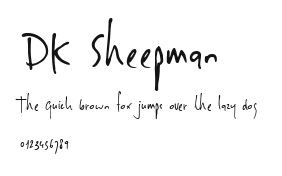 DK Sheepman
The quick brown fox jumps over the lazy dog
0123456789